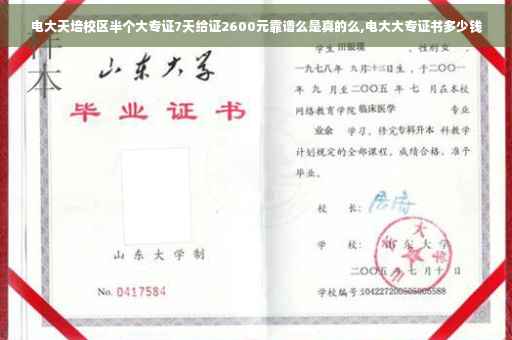 电大天培校区半个大专证7天给证2600元靠谱么是真的么,电大大专证书多少钱
样本
山东大学
毕业证书
山东大学制
No. 0417584
学生
性别女,
一九七八年 九月十二日生,于二〇〇一
年 九 月至二〇〇五 年 七 月在本校
网络教育学院 临床医学 专业
业余 学习,修完专科升本科教学
计划规定的全部课程,成绩合格,准予
毕业。
校 长:
学 校: 山东大学
二〇〇五 年 七 月 十 日
学校编号: